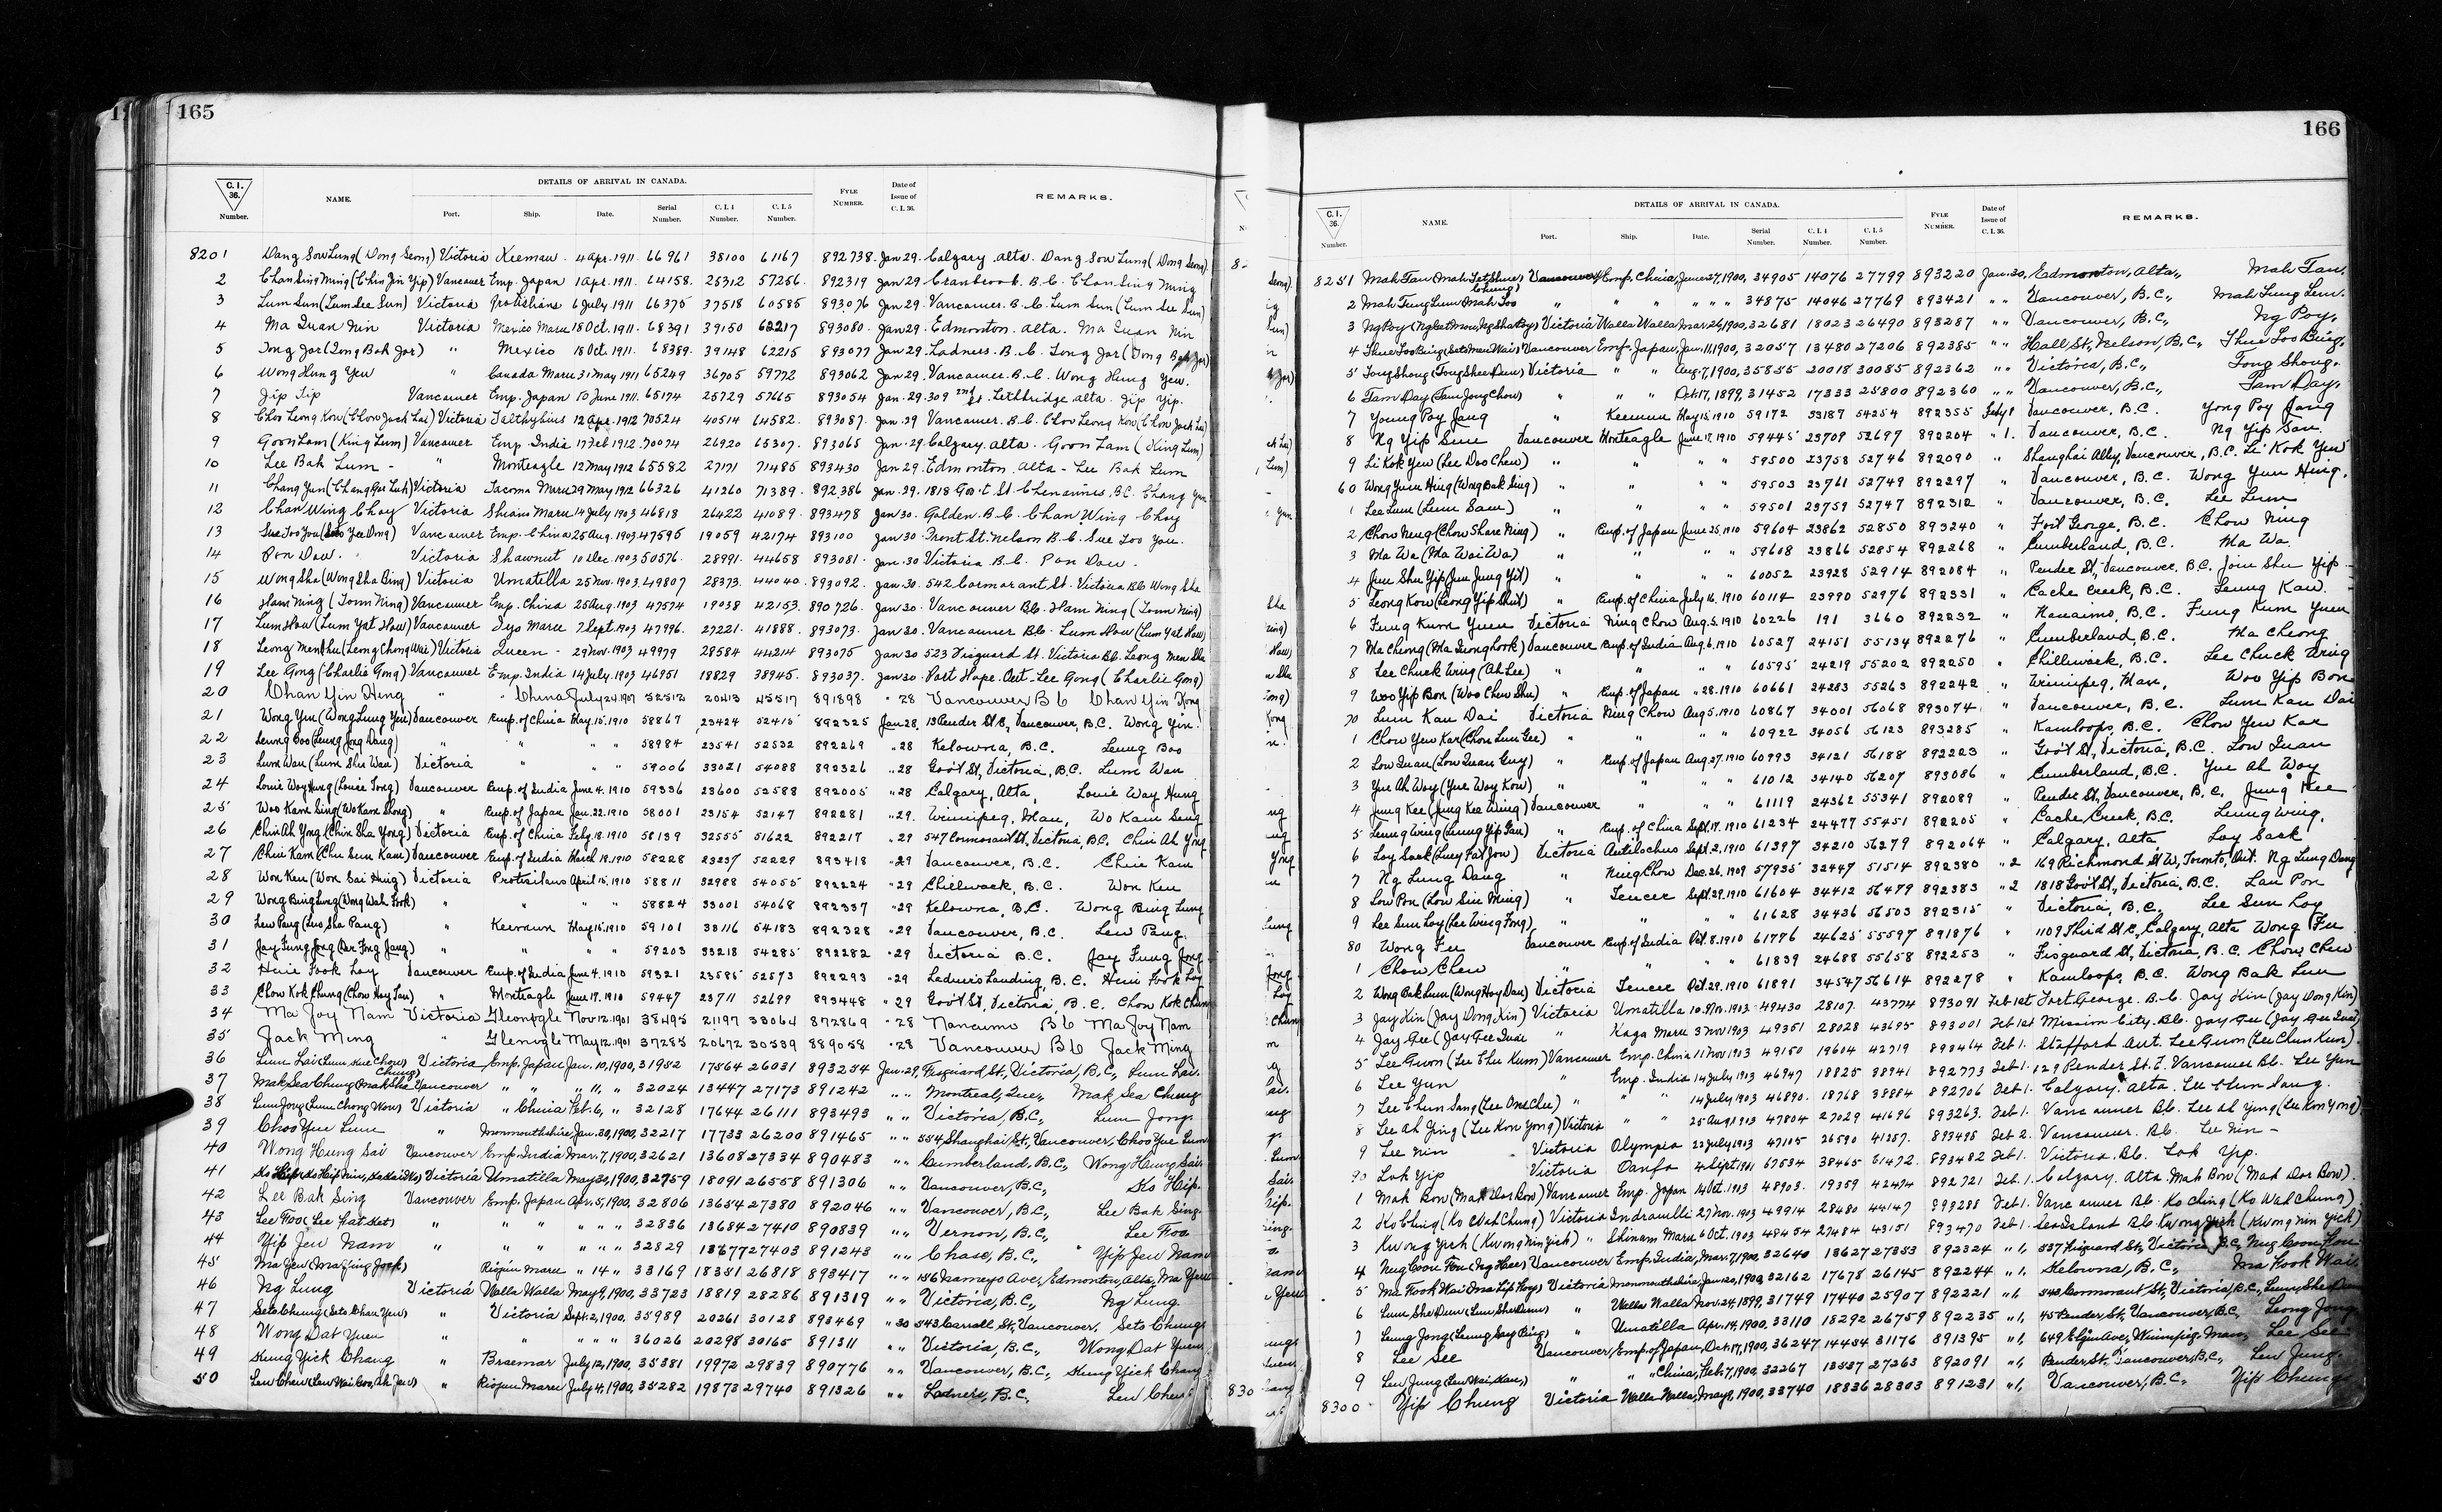 165
C.I. 36. Number. NAME. DETAILS OF ARRIVAL IN CANADA. Port. Ship. Date. Serial Number. C.I.4 Number. C.I.5 Number. FYLE NUMBER. Date of Issue of C.I.36. REMARKS.
8201 Dang Sow Lung (Dong Seong) Victoria Keemun 4 Apr. 1911 66961 38100 61167 892738 Jan 29 Calgary Alta. Dang Sow Lung (Dong Seong)
2 Chan Sing Ming (Chin Jin Yip) Vancouver Emp. Japan 1 Apr. 1911 64158 25312 57256 892319 Jan 29 Cranbrook B.C. Chan Sing Ming
3 Lum Sun (Lum See Sun) Victoria Protesilaus 6 July 1911 66375 37518 60585 893076 Jan 29 Vancouver B.C. Lum Sun (Lum See Sun)
4 Ma Quan Nin Victoria Mexico Maru 18 Oct. 1911 68391 39150 62217 893080 Jan 29 Edmonton Alta. Ma Quan Nin
5 Tong Jar (Tong Bak Jar) " Mexico 18 Oct. 1911 68389 39148 62215 893077 Jan 29 Ladners B.C. Tong Jar (Tong Bak Jar)
6 Wong Hung Yew " Canada Maru 31 May 1911 65249 36705 59772 893062 Jan 29 Vancouver B.C. Wong Hung Yew
7 Jip Yip Vancouver Emp. Japan 10 June 1911 65174 25729 57665 893054 Jan 29 309 2nd St. Lethbridge Alta. Jip Yip
8 Choo Leong Kow (Chow Jack Lai) Victoria Talthybius 12 Apr. 1912 70524 40514 64582 893087 Jan 29 Vancouver B.C. Choo Leong Kow (Chow Jack Lai)
9 Goon Lam (King Lum) Vancouver Emp. India 17 Feb 1912 70074 26920 65307 893065 Jan 29 Calgary Alta. Goon Lam (King Lum)
10 Lee Bak Lum " Monteagle 12 May 1912 65582 27171 71485 893430 Jan 29 Edmonton Alta Lee Bak Lum
11 Chang Yun (Chang Gee Luk) Victoria Tacoma Maru 29 May 1912 66326 41260 71389 892386 Jan 29 1818 Gov't St. Chemainus B.C. Chang Yun
12 Chan Wing Choy Victoria Shinano Maru 14 July 1903 46818 26422 41089 893478 Jan 30 Golden B.C. Chan Wing Choy
13 Sue Too You (Seto Yee Dong) Vancouver Emp. China 25 Aug. 1903 47595 19059 42174 893100 Jan 30 Front St. Nelson B.C. Sue Too You
14 Pon Dow Victoria Shawmut 10 Dec. 1903 50576 28991 44658 893081 Jan 30 Victoria B.C. Pon Dow
15 Wong Sha (Wong Sha Bing) Victoria Umatilla 25 Nov. 1903 49807 28373 44040 893092 Jan 30 542 Cormorant St. Victoria B.C. Wong Sha
16 Ham Ning (Tomm Ning) Vancouver Emp. China 25 Aug. 1903 47574 19038 42153 890726 Jan 30 Vancouver B.C. Ham Ning (Tomm Ning)
17 Lum How (Lum Yat How) Vancouver Iyo Maru 7 Sept. 1903 47996 27221 41888 893073 Jan 30 Vancouver B.C. Lum How (Lum Yat How)
18 Leong Men Shu (Leong Chong Wai) Victoria Queen 29 Nov. 1903 49979 28584 44214 893075 Jan 30 523 Fisguard St. Victoria B.C. Leong Men Shu
19 Lee Gong (Charlie Gong) Vancouver Emp. India 14 July 1903 46951 18829 38945 893037 Jan 30 Port Hope Ont. Lee Gong (Charlie Gong)
20 Chan Yin Hing " " China July 24 1907 52512 20413 45517 891898 " 28 Vancouver B C Chan Yin Hong
21 Wong Yin (Wong Lung Yin) Vancouver Emp. of China May 15 1910 58867 23424 52415 892325 Jan 28 13 Pender St. E, Vancouver, B.C. Wong Yin
22 Leung Boo (Leung Jong Dang) " " " " 58984 23541 52532 892269 " 28 Kelowna, B.C. Leung Boo
23 Lum Wan (Lum Shu Wan) Victoria " " " 59006 33021 54088 892326 " 28 Gov't St, Victoria, B.C. Lum Wan
24 Louie Way Hung (Louie Tong) Vancouver Emp. of India June 4 1910 59336 23600 52588 892005 " 28 Calgary, Alta, Louie Way Hung
25 Woo Kam Sing (Wo Kam Shong) " Emp. of Japan Jan. 22 1910 58001 23154 52147 892281 " 29 Winnipeg, Man, Wo Kam Sing
26 Chin Ah Yong (Chin Sha Yong) Victoria Emp. of China Feby 18 1910 58139 32555 51622 892217 " 29 547 Cormorant St, Victoria, B.C. Chin Ah Yong
27 Chin Kam (Chu Sun Kam) Vancouver Emp. of India March 18 1910 58228 23237 52229 893418 " 29 Vancouver, B.C. Chin Kam
28 Won Ken (Won Sai Hing) Victoria Protesilaus April 15 1910 58811 32988 54055 892224 " 29 Chilliwack, B.C. Won Ken
29 Wong Bing Lung (Wong Wah Fook) " " " " 58824 33001 54068 892337 " 29 Kelowna, B.C. Wong Bing Lung
30 Lew Pang (Luo Sha Pang) " Keemun May 15 1910 59101 33116 54183 892328 " 29 Vancouver, B.C. Lew Pang
31 Jay Fung Jong (Der Fong Jang) " " " " 59203 33218 54285 892282 " 29 Victoria B.C. Jay Fung Jong
32 Huie Fook Loy Vancouver Emp. of India June 4 1910 59321 23585 52573 892293 " 29 Ladners Landing, B.C. Huie Fook Loy
33 Chow Kok Chung (Chow Hay Jan) " Monteagle June 17 1910 59447 23711 52699 893448 " 29 Gov't St, Victoria, B.C. Chow Kok Chung
34 Ma Joy Nam Victoria Glenogle Nov 12 1901 38495 21197 33064 872869 " 28 Nanaimo B C Ma Joy Nam
35 Jack Ming " Glenogle May 12 1901 37285 20672 30539 889058 " 28 Vancouver B C Jack Ming
36 Lum Lai (Lum Kue Chow) Victoria Emp. Japan Jan. 10, 1900, 31952 17564 26031 893254 Jan. 29, Fisguard St., Victoria, B.C., Lum Lai
37 Mak Sea Chung (Mak She Chung) Vancouver " " " 11, " 32024 13447 27173 891242 " " Montreal, Que., Mak Sea Chung
38 Lum Jong (Lum Chong Won) Victoria " China Feb. 6, " 32128 17644 26111 893493 " " Victoria, B.C., Lum Jong
39 Choo Yue Lum " Monmouthshire, Jan. 30, 1900, 32217 17733 26200 891465 " " 554 Shanghai St., Vancouver, Choo Yue Lum
40 Wong Hung Sai Vancouver Emp. India Mar. 7, 1900, 32621 13608 27334 890483 " " Cumberland, B.C., Wong Hung Sai
41 Ko Hip Victoria Umatilla May 30, 1900, 32759 18091 26558 891306 " " Vancouver, B.C., Ko Hip
42 Lee Bak Sing Vancouver Emp. Japan Apr. 5, 1900, 32806 13654 27380 892046 " " Vancouver, B.C., Lee Bak Sing
43 Lee Foo (Lee Fat Ket) " " " " " " 32836 13684 27410 890839 " " Vernon, B.C., Lee Foo
44 Yip Jew Nam " " " " " " 32829 13677 27403 891243 " " Chase, B.C., Yip Jew Nam
45 Ma Yew (Ma Jing Jock) Riojun Maru " 14 " 33169 18351 26818 893417 " " 156 Namayo Ave., Edmonton, Alta., Ma Yew
46 Ng Lung Victoria Walla Walla May 9, 1900, 33723 18819 28286 891319 " " Victoria, B.C., Ng Lung
47 Seto Chung (Seto Chan Yew) " Victoria Sept. 2, 1900, 35989 20261 30128 893469 " 30 543 Carrall St., Vancouver, Seto Chung
48 Wong Dat Yuen " " " " " 36026 20298 30165 891311 " " Victoria, B.C., Wong Dat Yuen
49 Kung Yick Chang " Braemar July 12, 1900, 35381 19972 29839 890776 " " Vancouver, B.C., Kung Yick Chang
50 Lew Chew " Riojun Maru July 4, 1900, 35282 19873 29740 891326 " " Ladners, B.C., Lew Chew
166
C.I. 36. Number. NAME. DETAILS OF ARRIVAL IN CANADA. Port. Ship. Date. Serial Number. C.I.4 Number. C.I.5 Number. FYLE NUMBER. Date of Issue of C.I.36. REMARKS.
8251 Mah Fan Vancouver Emp. China, June 27, 1900, 34905 14076 27799 893220 Jan. 30, Edmonton, Alta., Mah Fan
2 Mah Tung Lum " " " " " " 34875 14046 27769 893421 " " Vancouver, B.C., Mah Tung Lum
3 Ng Poy Victoria Walla Walla Mar. 26, 1900, 32681 18023 26490 893287 " " Vancouver, B.C., Ng Poy
4 Shue Too Bing (Seto Man Wai) Vancouver Emp. Japan, Jan. 11, 1900, 32057 13480 27206 892385 " " Hall St., Nelson, B.C., Shue Too Bing
5 Tong Shong (Tong Shee Dun) Victoria " " Aug. 7, 1900, 35855 20018 30085 892362 " " Victoria, B.C., Tong Shong
6 Fam Day (Fam Jong Chow) " " " Oct. 17, 1899, 31452 17333 25800 892360 " " Vancouver, B.C., Fam Day
7 Young Poy Jang " Keemun May 15 1910 59172 33187 54254 892355 Feby 1 Vancouver, B.C. Yong Poy Jang
8 Ng Yip Sun Vancouver Monteagle June 17, 1910 59445 23709 52697 892204 " 1. Vancouver, B.C. Ng Yip San
9 Li Kok Yew (Lee Doo Chew) " " " " 59500 23758 52746 892090 " Shanghai Alley, Vancouver, B.C. Li Kok Yew
60 Wong Yuen Hing (Wong Bak Sing) " " " " 59503 23761 52749 892297 " Vancouver, B.C. Wong Yuen Hing
1 Lee Lum (Lum Sam) " " " " 59501 23759 52747 892312 " Vancouver, B.C. Lee Lum
2 Chow Neng (Chow Share Ning) " Emp. of Japan June 25 1910 59604 23862 52850 893240 " Fort George, B.C. Chow Ning
3 Ma Wa (Ma Wai Wa) " " " " 59608 23866 52854 892268 " Cumberland, B.C. Ma Wa
4 Jim Shu Yip (Jun Jung Yit) " " " " 60052 23928 52914 892084 " Pender St., Vancouver, B.C. Joim Shu Yip
5 Leong Kow (Leong Yip Shut) " Emp. of China July 16 1910 60114 23990 52976 892331 " Cache Creek, B.C. Leung Kaw
6 Fung Kum Yuen Victoria Ning Chow Aug. 5 1910 60226 191 3660 892232 " Nanaimo, B.C. Fung Kum Yuen
7 Ma Cheong Vancouver Emp. of India Aug. 6 1910 60527 24151 55134 892276 " Cumberland, B.C. Ma Cheong
8 Lee Chuck Wing (Ah Lee) " " " " 60595 24219 55202 892250 " Chilliwack, B.C. Lee Chuck Wing
9 Woo Yip Bon (Woo Chew Shu) " Emp. of Japan " 28 1910 60661 24283 55263 892242 " Winnipeg, Man, Woo Yip Bon
70 Lum Kan Dai Victoria Ning Chow Aug 5 1910 60867 34001 56068 893074 " Vancouver, B.C. Lum Kan Dai
1 Chow Yew Kar (Chow Lum Gee) " " " " 60922 34056 56123 893285 " Kamloops, B.C. Chow Yew Kar
2 Low Quan (Low Quan Guy) " Emp. of Japan Aug. 27 1910 60993 34121 56188 892223 " Gov't St, Victoria, B.C. Low Quan
3 Yue Ah Way (Yue Way Kow) " " " " 61012 34140 56207 893086 " Cumberland, B.C. Yue Ah Way
4 Jung Kee (Jung Kee Wing) Vancouver " " " 61119 24362 55341 892089 " Pender St, Vancouver, B.C, Jung Kee
5 Leung Wing (Leung Yip Gan) " Emp. of China Sept. 17 1910 61234 24477 55451 892205 " Cache Creek, B.C. Leung Wing
6 Loy Sack (Luey Fat Jow) Victoria Antilochus Sept. 2 1910 61397 34210 56279 892064 " Calgary, Alta Loy Sack
7 Ng Lung Dang " Ning Chow Dec. 26, 1909 57935 32447 51514 892380 " 2 169 Richmond St W, Toronto, Ont. Ng Lung Dang
8 Low Pon (Low Sin Ming) " Teucer Sept. 29 1910 61604 34412 56479 892383 " 2 1818 Gov't St, Victoria, B.C. Lau Pon
9 Lee Sun Loy (Lee Wing Fong) " " " " 61628 34436 56503 892315 " Victoria, B.C. Lee Sun Loy
80 Wong Fee Vancouver Emp. of India Oct. 8 1910 61776 24625 55597 891876 " 1109 Third St E, Calgary, Alta Wong Fee
1 Chow Chew " " " " 61839 24688 55658 892253 " Fisguard St, Victoria, B.C. Chow Chew
2 Wong Bak Lun (Wong Hoy Dan) Victoria Teucer Oct. 29 1910 61891 34547 56614 892278 " Kamloops, B.C. Wong Bak Lun
3 Jay Kin (Jay Dong Kin) Victoria Umatilla 10 Nov. 1903 49430 28107 43774 893091 Feb 1st Fort George B.C. Jay Kin (Jay Dong Kin)
4 Jay Gee " Kaga Maru 3 Nov 1903 49351 28028 43695 893001 Feb 1st Mission City B.C. Jay Gee
5 Lee Guron (Lee Chu Kum) Vancouver Emp. China 11 Nov 1903 49150 19604 42719 893464 Feb 1. Stafford Ont. Lee Guron (Lee Chun Kum)
6 Lee Yun " Emp. India 14 July 1903 46947 18825 38941 892773 Feb 1. 129 Pender St. E. Vancouver B.C. Lee Yun
7 Lee Chun Sang (Lee One Chu) " " " 14 July 1903 46890 18768 38884 892706 Feb 1. Calgary Alta. Lee Chun Sang
8 Lee Ah Ying (Lee Kon Yong) Victoria " " 25 Aug 1903 47804 27029 41696 893263 Feb 1. Vancouver B.C. Lee Ah Ying (Lee Kon Yong)
9 Lee Nin Victoria Olympia 22 July 1903 47105 26590 41257 893495 Feb 2. Vancouver B.C. Lee Nin
90 Lok Yip Victoria Oanfa 4 Sept 1911 67534 38465 61472 893482 Feb 1. Victoria B.C. Lok Yip
1 Mah Bow (Mah Dor Bow) Vancouver Emp. Japan 14 Oct. 1903 48903 19359 42474 892721 Feb. 1. Calgary Alta. Mah Bow (Mah Dor Bow)
2 Ko Ching (Ko Wah Chung) Victoria Indravelli 27 Nov. 1903 49914 28480 44147 893288 Feb 1. Vancouver B.C. Ko Ching (Ko Wah Chung)
3 Kwong Yick (Kwong Nin Yick) " Shinano Maru 6 Oct. 1903 48454 27484 43151 893470 Feb 1. Sea Island B.C. Kwong Yick (Kwong Nin Yick)
4 Nug Coon How (Ng Hee) Vancouver Emp. India, Mar. 7, 1900, 32640 13627 27353 892324 " 1, 537 Fisguard St, Victoria, B.C, Nug Coon How
5 Ma Fook Wai (Ma Lip Hoy) Victoria Monmouthshire, Jan. 20, 1900, 32162 17678 26145 892244 " 1, Kelowna, B.C., Ma Fook Wai
6 Lum She Dun " Walla Walla Nov. 24, 1899, 31749 17440 25907 892221 " 1, 543 Cormorant St, Victoria, B.C., Lum She Dun
7 Leung Jong (Leung Say Bing) " Umatilla Apr. 14, 1900, 33110 18292 26759 892235 " 1, 45 Pender St, Vancouver, B.C, Leong Jong
8 Lee See Vancouver, Emp. of Japan, Oct. 17, 1900, 36247 14454 31176 891395 " 1, 649 Elgin Ave, Winnipeg, Man, Lee See
9 Lew Jung " " " China, Feb. 7, 1900, 32267 13537 27263 892091 " 1, Pender St, Vancouver, B.C., Lew Jung
8300 Yip Chung Victoria Walla Walla, May 9, 1900, 33740 18836 28303 891231 " 1, Vancouver, B.C., Yip Chung